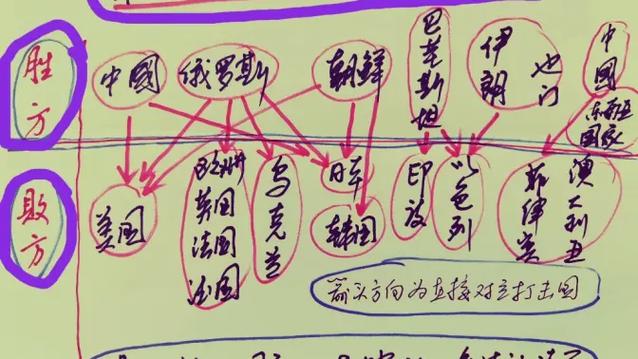 胜方
中國
俄罗斯
朝鲜
巴基斯坦
伊朗
也门
中國
东南亚
国家
败方
美国
欧洲
英国
法国
德国
乌克兰
日本
韩国
印度
以色列
菲律宾
澳大利亚
箭头方向为直接对立打击国